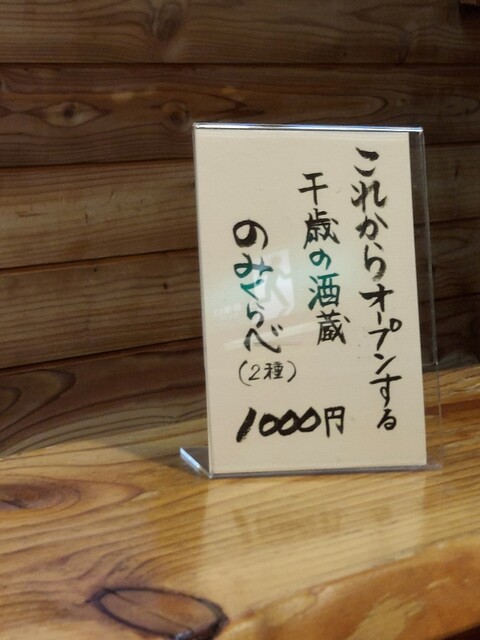 これからオープンする
千歳の酒蔵
のみくらべ
(2種)
1000円